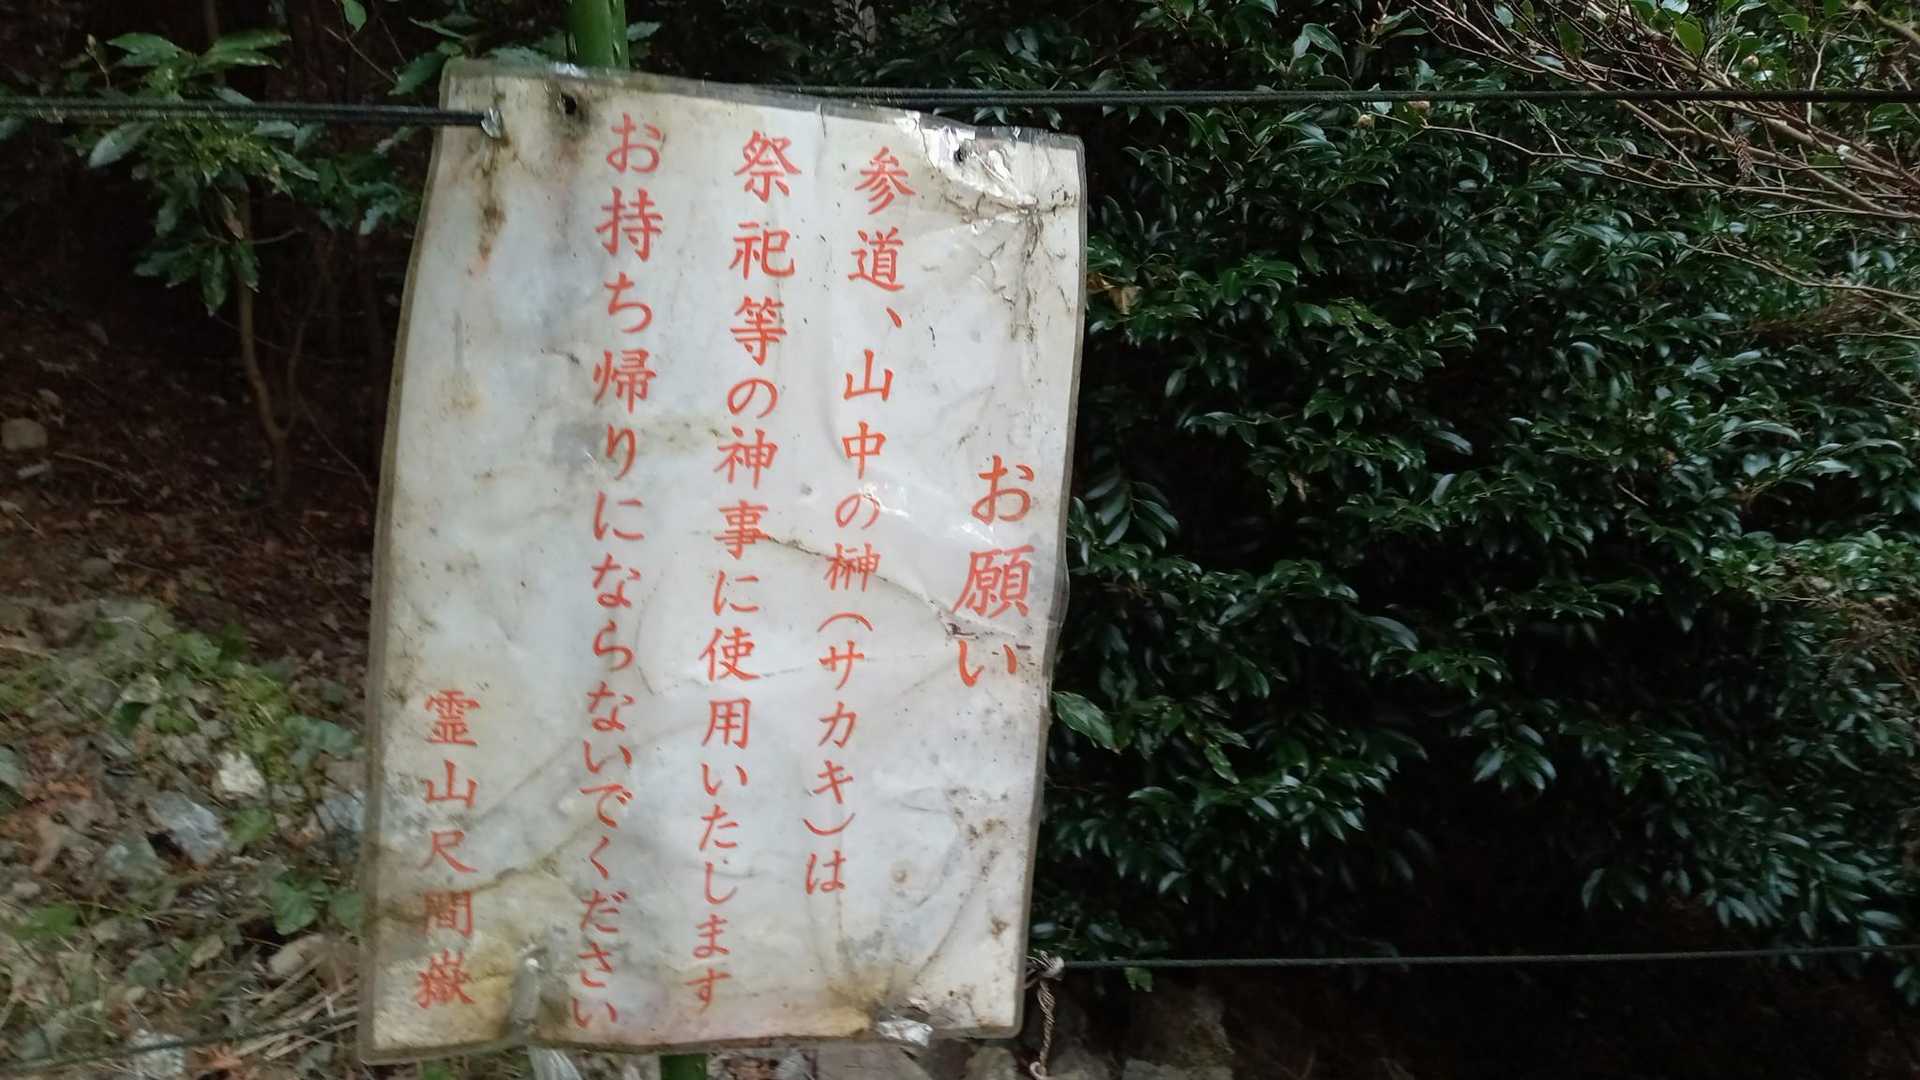 お願い
参道、山中の榊(サカキ)は
祭祀等の神事に使用いたします
お持ち帰りにならないでください
霊山尺間嶽